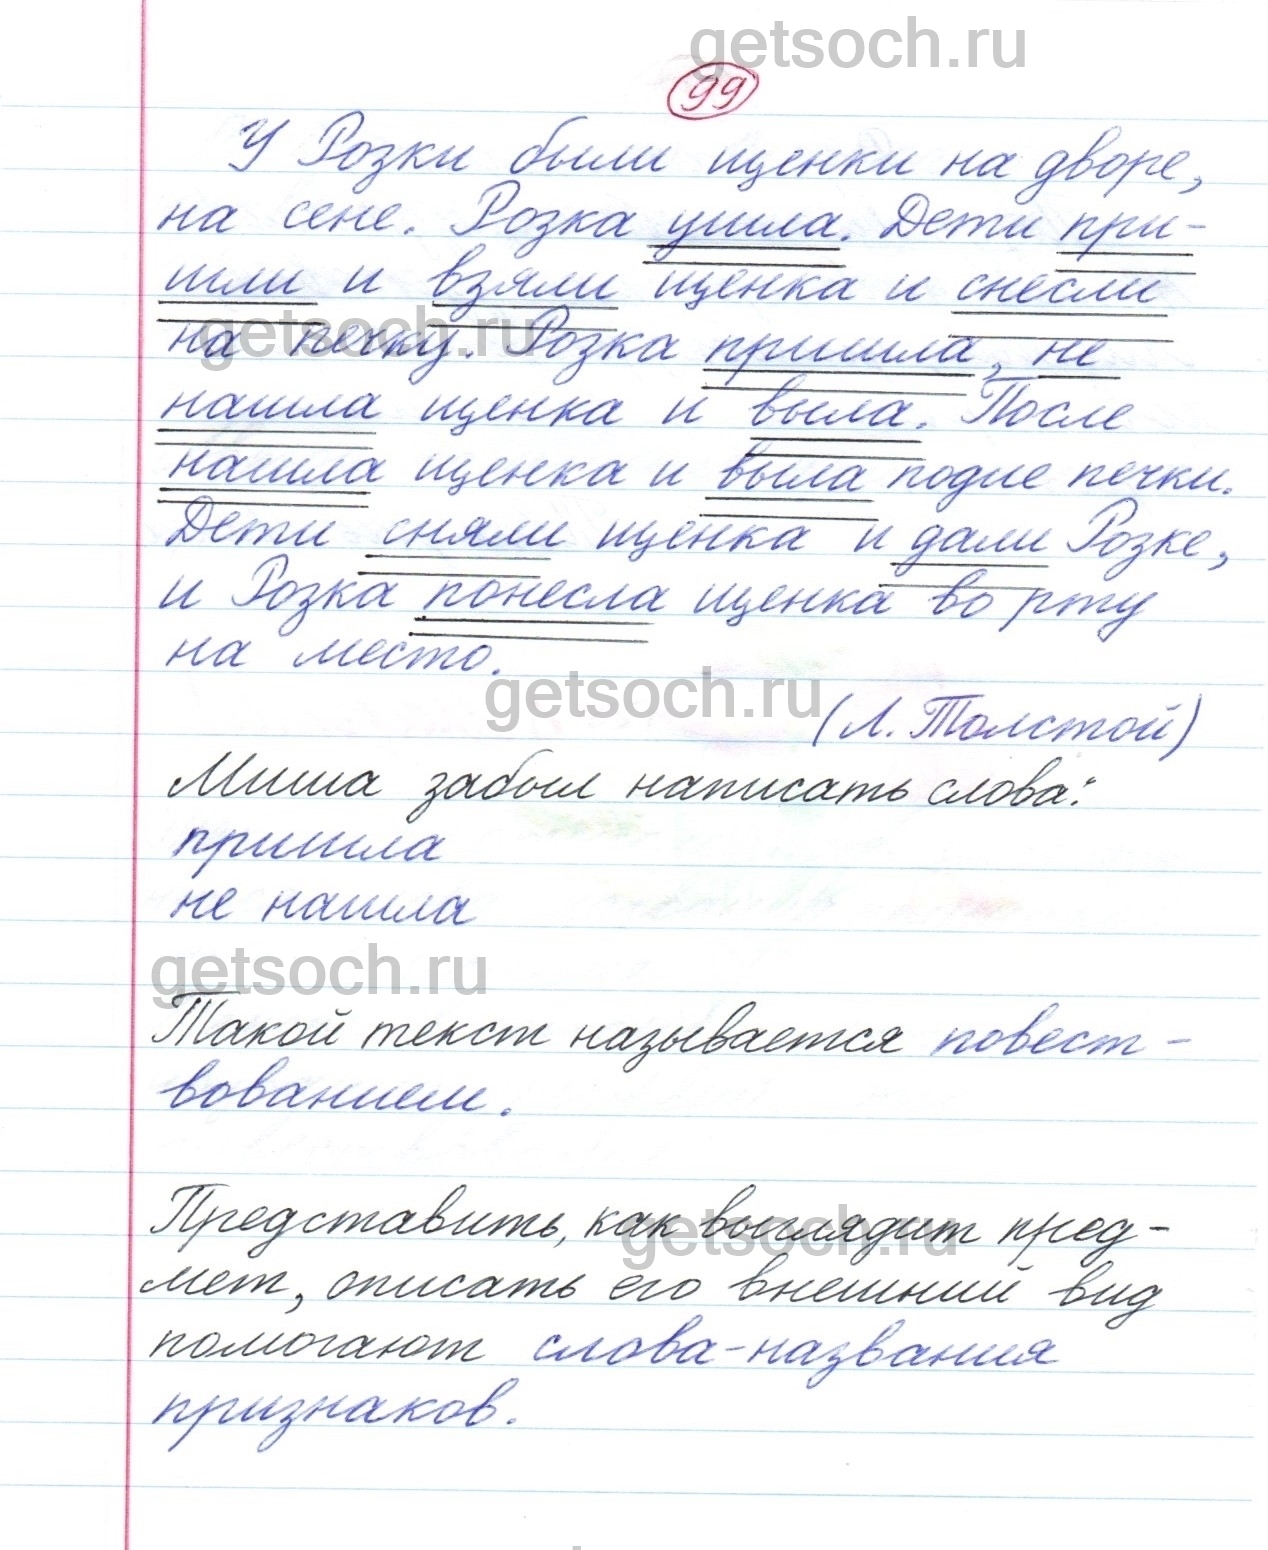 getsoch.ru
99
У Розки были щенки на дворе,
на сене. Розка ушла. Дети при-
шли и взяли щенка и снесли
getsoch.ru
на печку. Розка пришла, не
нашла щенка и выла. После
нашла щенка и выла подле печки.
Дети сняли щенка и дали Розке,
и Розка понесла щенка во рту
на место.
getsoch.ru
(Л. Толстой)
Миша забыл написать слова:
пришла
не нашла
getsoch.ru
Такой текст называется повест-
вованием.
Представить, как выглядит пред-
getsoch.ru
мет, описать его внешний вид
помогают слова-названия
признаков.